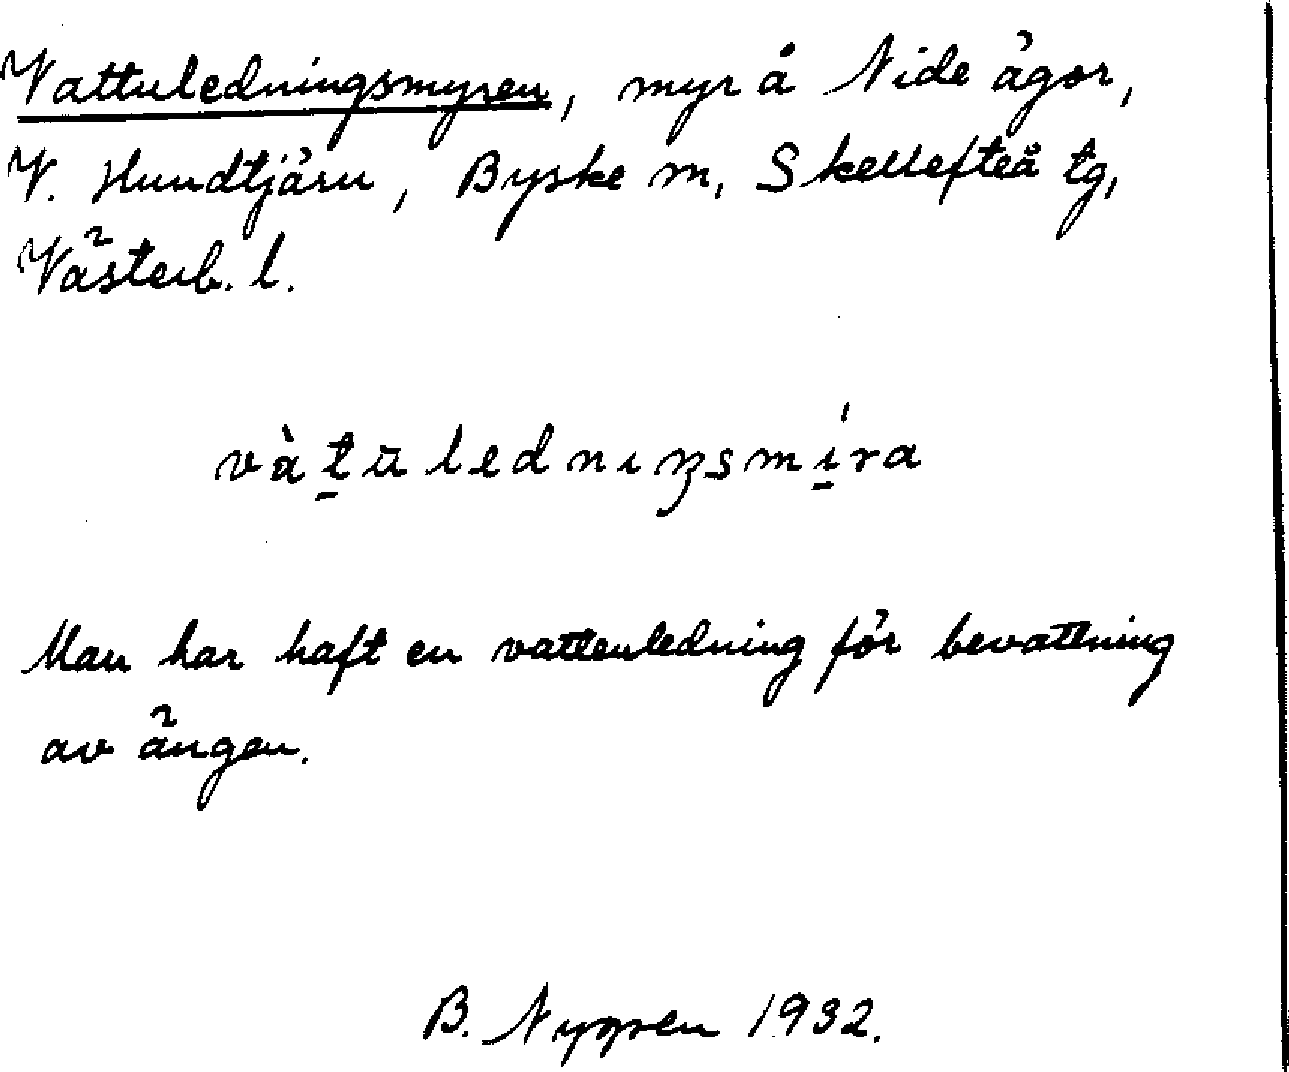 Vattuledningsmyren, myr å Nide ägor,
V. Hundtjärn, Byske sn, Skellefteå tg,
Västerb. l.
vàt̠ūledniŋsmí̠ra
Man har haft en vattenledning för bevattning
av ängen.
B. Nygren 1932.